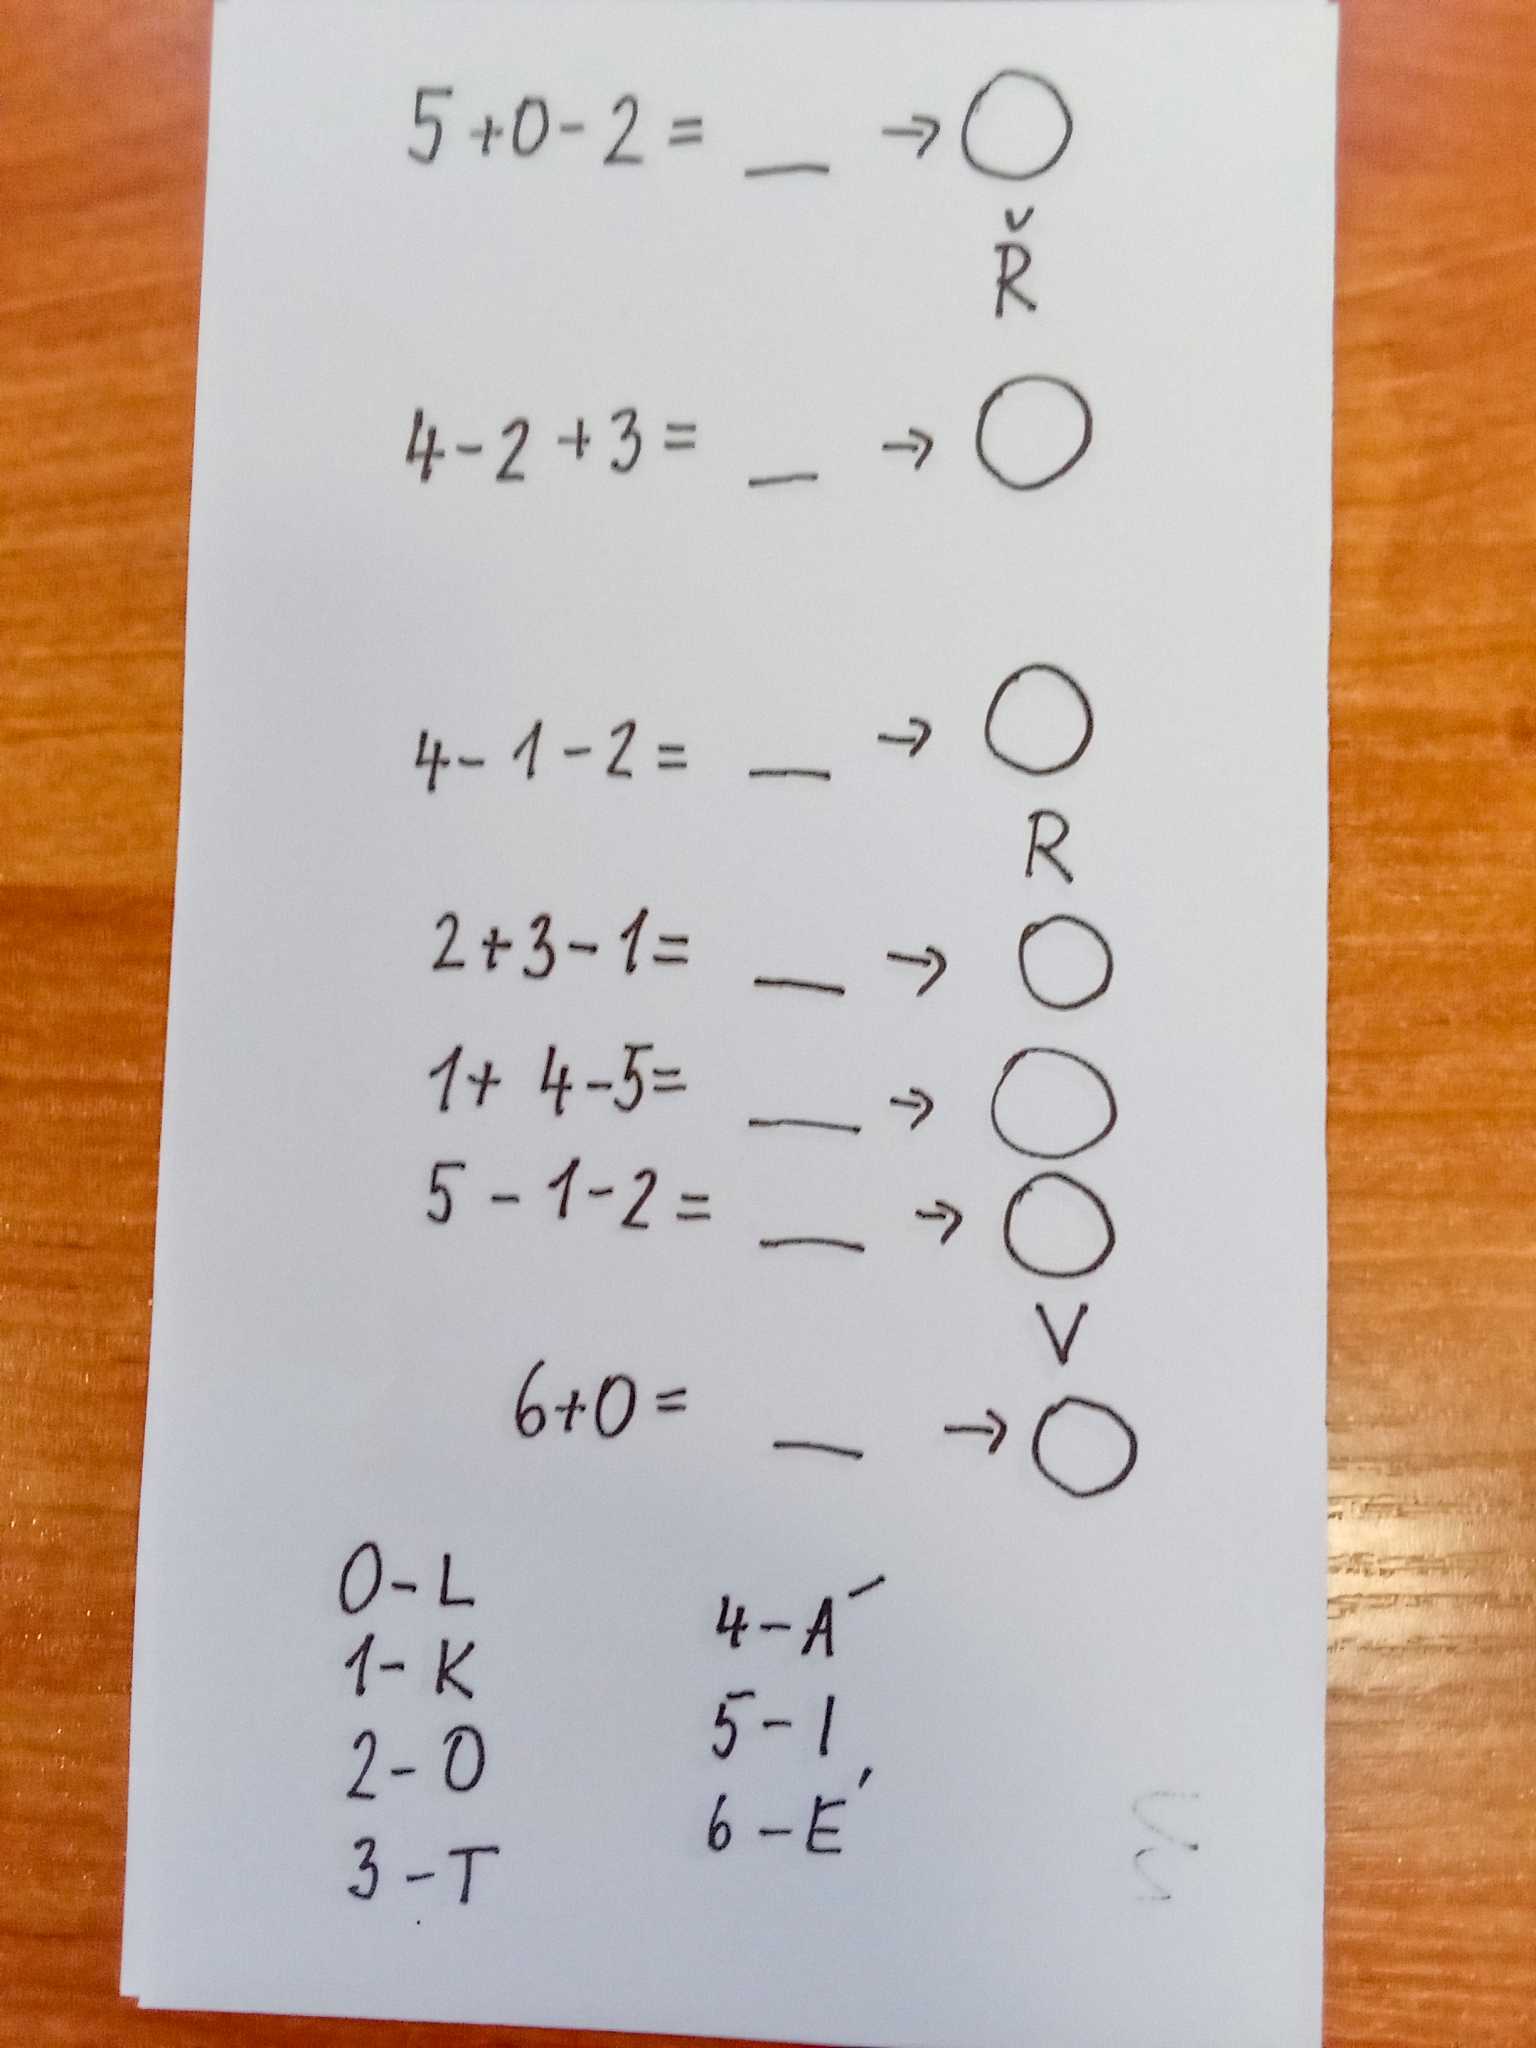 5+0-2= _ → ○
Ř
4-2+3= _ → ○
4-1-2= _ → ○
R
2+3-1= _ → ○
1+4-5= _ → ○
5-1-2= _ → ○
V
6+0= _ → ○
0-L
1-K
2-O
3-T
4-Á
5-I
6-É